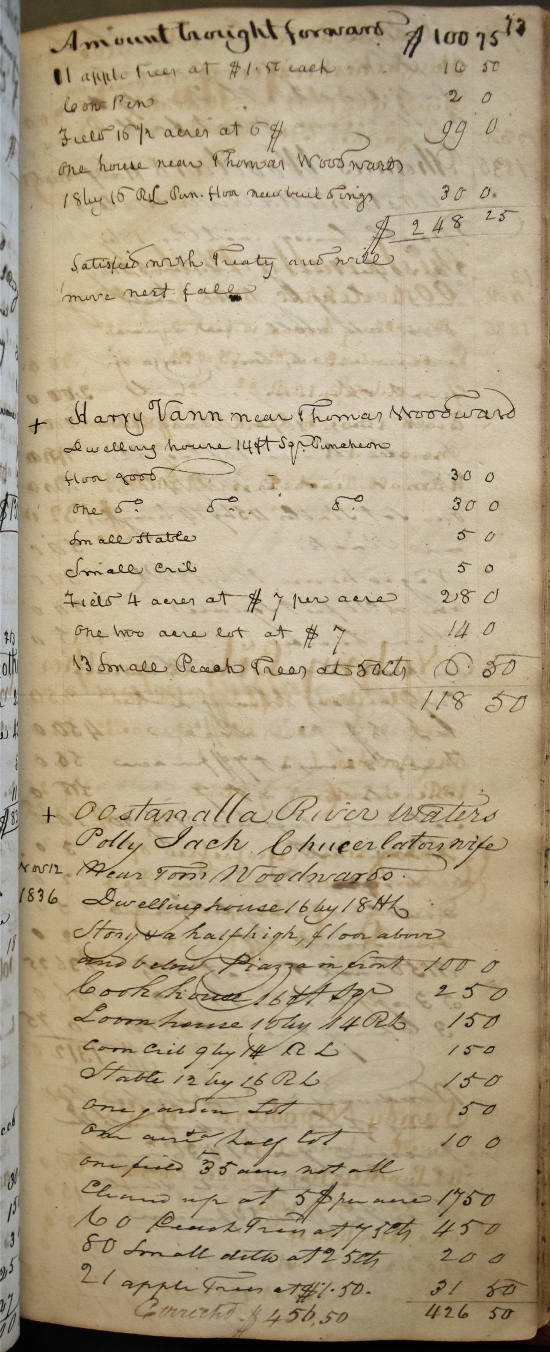 Amount brought forward $ 100 75 13
11 apple Trees at $1.50 each 16 50
Corn Pen 2 0
Field 16 1/2 acres at 6 $ 99 0
one house near Thomas Woodwards
18 by 16 RL Pun. floor new buildings 30 0.
$ 248 25
Satisfied with Treaty and will
move next fall
+ Harry Vann near Thomas Woodward
Dwelling house 14 ft Sqr. Puncheon
floor good 30 0
one do. do. do. 30 0
Small Stable 5 0
Small Crib 5 0
Field 4 acres at $ 7 per acre 28 0
one two acre lot at $ 7 14 0
13 Small Peach Trees at 50cts 6. 50
118 50
+ Oostanalla River Waters
Polly Jack wife
Novr 12 Near Tom Woodwards.
1836 Dwelling house 16 by 18 HL
Story & a half high, floor above
and below Piazza in front 100 0
Cook house 16 ft Sqr 25 0
Loom house 16 by 14 RL 15 0
Corn Crib 9 by 14 RL 15 0
Stable 12 by 16 RL 15 0
one garden Lot 5 0
one half lot 10 0
one field 35 acres not all
Cleared up at 5 $ per acre 175 0
60 Peach Trees at 75cts 45 0
80 Small ditto at 25cts 20 0
21 apple Trees at $1.50. 31 50
Corrected. $ 456.50 426 50